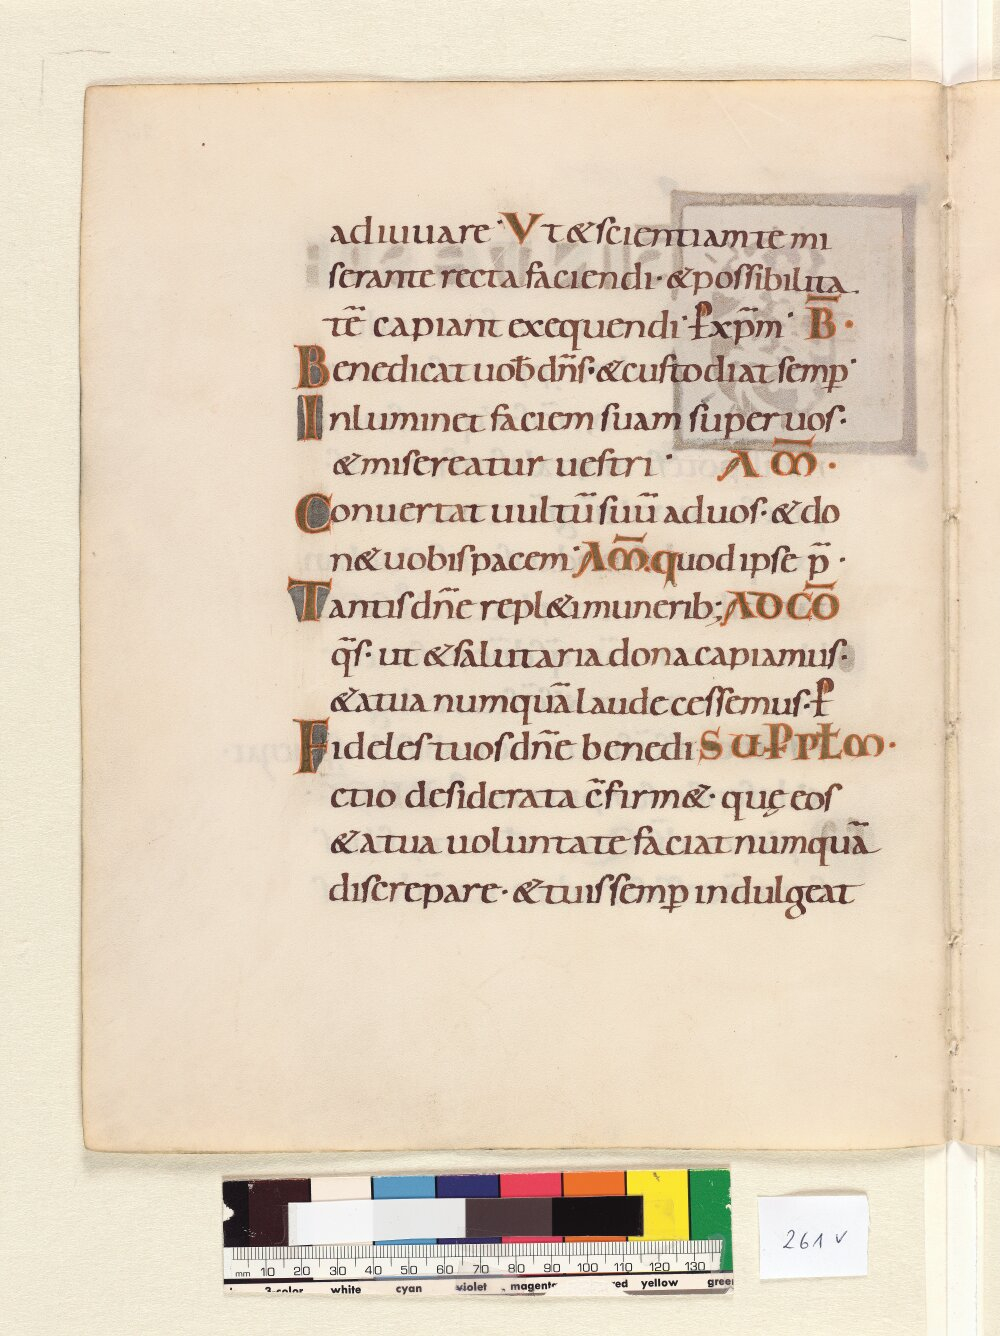 adiuuare· Vt &scientiam te mi
serante recta faciendi· &possibilita
tē capiant exequendi· ꝑ xp̄m· B̄·
Benedicat uob̄ dn̄s· &custodiat semꝑ·
Inluminet faciem suam super uos·
&misereatur uestri· AM̄·
Conuertat uultū suū ad uos· &do
n& uobis pacem· AM̄. quod ipse p̄·
Tantis dn̄e repl&i munerib; AD CŌ
q̄s· ut &salutaria dona capiamus·
&atua numquā laude cessemus· ꝑ
Fideles tuos dn̄e benedi SUP PPL̄M·
ctio desiderata c̄firm&· quę eos
&atua uoluntate faciat numquā
discrepare· &tuis semꝑ indulgeat
261 v
mm 10 20 30 40 50 60 70 80 90 100 110 120 130
3-color white cyan violet magenta red yellow green